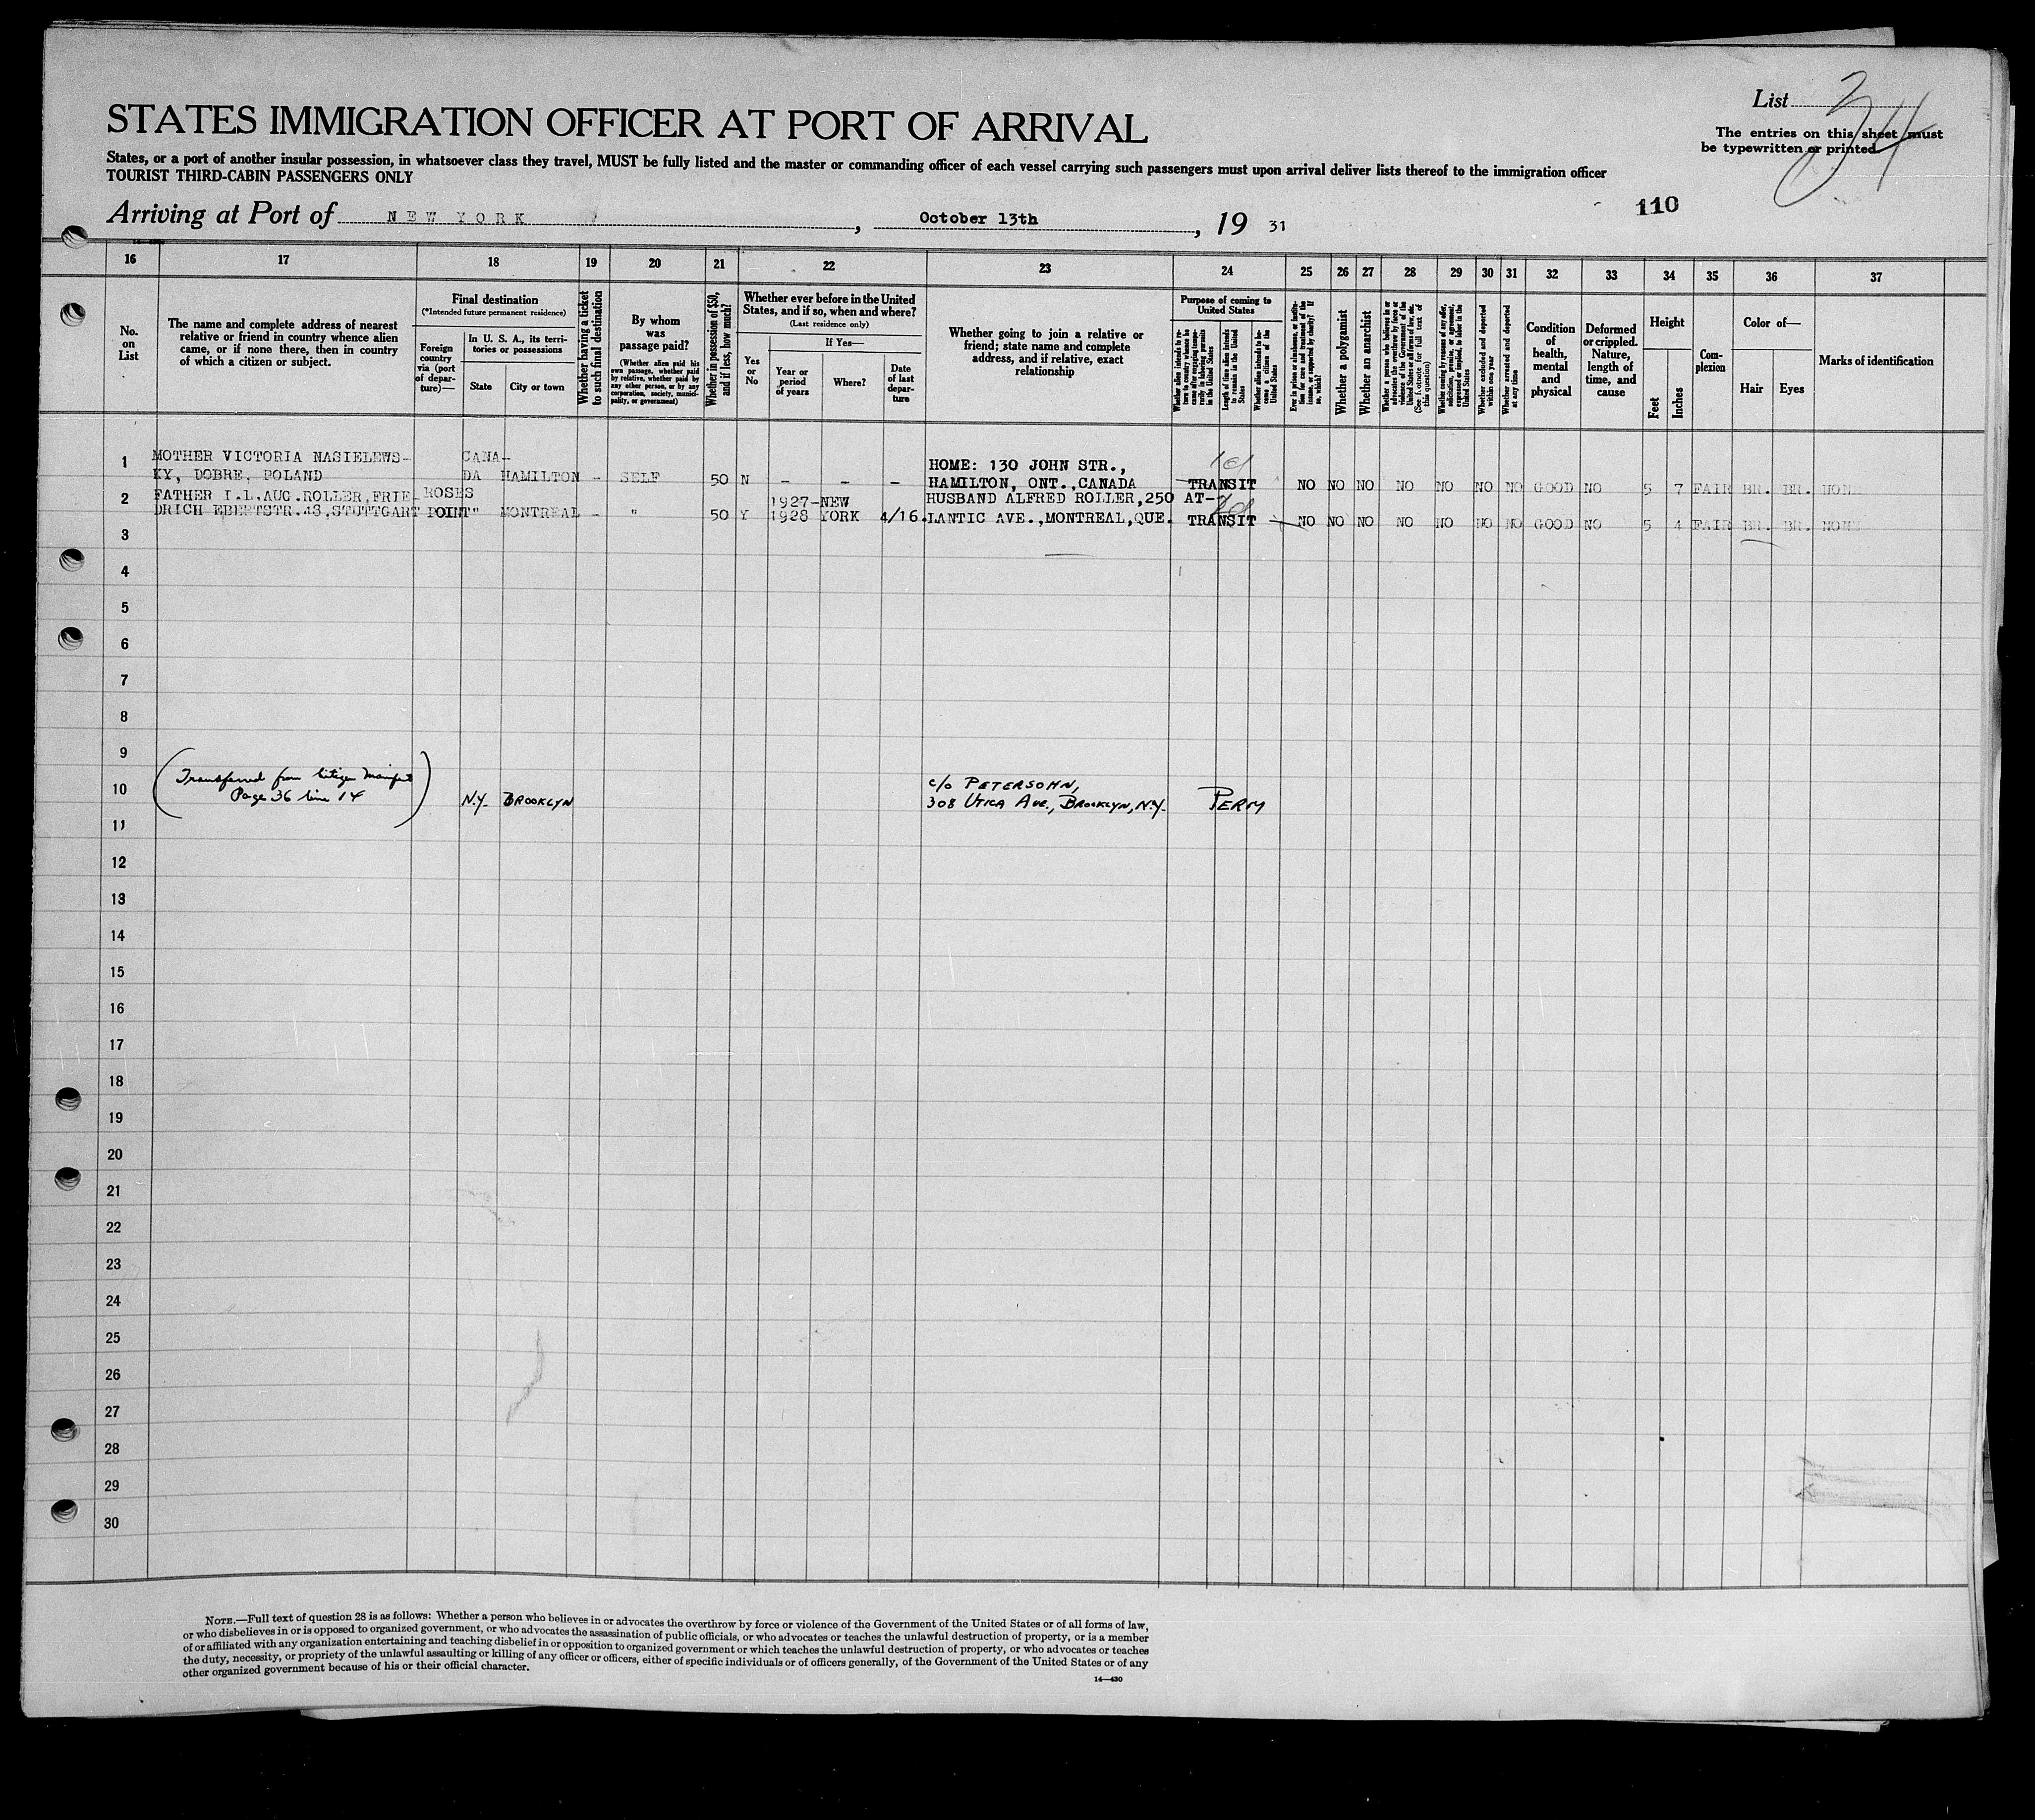 List 34
STATES IMMIGRATION OFFICER AT PORT OF ARRIVAL
The entries on this sheet must
be typewritten or printed
States, or a port of another insular possession, in whatsoever class they travel, MUST be fully listed and the master or commanding officer of each vessel carrying such passengers must upon arrival deliver lists thereof to the immigration officer
TOURIST THIRD-CABIN PASSENGERS ONLY
110
Arriving at Port of NEW YORK, October 13th, 19 31
16 17 18 19 20 21 22 23 24 25 26 27 28 29 30 31 32 33 34 35 36 37
No. on List
The name and complete address of nearest
relative or friend in country whence alien
came, or if none there, then in country
of which a citizen or subject.
Final destination
(*Intended future permanent residence)
Foreign
country
via (port
of depar-
ture)—
In U. S. A., its terri-
tories or possessions
State
City or town
Whether having a ticket
to such final destination
By whom
was
passage paid?
(Whether alien paid his
own passage, whether paid
by relative, whether paid by
any other person, or by any
corporation, society, munici-
pality, or government)
Whether in possession of $50,
and if less, how much?
Whether ever before in the United
States, and if so, when and where?
(Last residence only)
Yes
or
No
If Yes—
Year or
period
of years
Where?
Date
of last
depar-
ture
Whether going to join a relative or
friend; state name and complete
address, and if relative, exact
relationship
Purpose of coming to
United States
Whether alien intends to re-
turn to country whence he
came after engaging tempo-
rarily in laboring pursuits
in the United States
Length of time alien intends
to remain in the United
States
Whether alien intends to be-
come a citizen of the
United States
Ever in prison or almshouse, or institu-
tion for care and treatment of the
insane, or supported by charity? If
so, which?
Whether a polygamist
Whether an anarchist
Whether a person who believes in or
advocates the overthrow by force or
violence of the Government of the
United States or all forms of law, etc.
(See footnote for full text of
this question)
Whether coming by reason of any offer,
solicitation, promise, or agreement,
expressed or implied, to labor in the
United States
Whether excluded and deported
within one year
Whether arrested and deported
at any time
Condition
of
health,
mental
and
physical
Deformed
or crippled.
Nature,
length of
time, and
cause
Height
Feet
Inches
Com-
plexion
Color of—
Hair
Eyes
Marks of identification
1 MOTHER VICTORIA NASIELEWS- CANA- HOME: 130 JOHN STR.,
KY, DOBRE, POLAND DA HAMILTON - SELF 50 N - - - HAMILTON, ONT.,CANADA TRANSIT NO NO NO NO NO NO NO GOOD NO 5 7 FAIR BR. BR. NONE
2 FATHER I.L.AUG.ROLLER,FRIE- ROSES 1927- NEW HUSBAND ALFRED ROLLER,250 AT-
DRICH EBERTSTR.43,STUTTGART POINT " MONTREAL - " 50 Y 1928 YORK 4/16. LANTIC AVE.,MONTREAL,QUE. TRANSIT NO NO NO NO NO NO NO GOOD NO 5 4 FAIR BR. BR. NONE
3
4
5
6
7
8
9
(Transferred from Citizen Manifest c/o PETERSOHN,
10 Page 36 line 14) N.Y. BROOKLYN 308 UTICA AVE., BROOKLYN, N.Y. PERM
11
12
13
14
15
16
17
18
19
20
21
22
23
24
25
26
27
28
29
30
NOTE.—Full text of question 28 is as follows: Whether a person who believes in or advocates the overthrow by force or violence of the Government of the United States or of all forms of law,
or who disbelieves in or is opposed to organized government, or who advocates the assassination of public officials, or who advocates or teaches the unlawful destruction of property, or is a member
of or affiliated with any organization entertaining and teaching disbelief in or opposition to organized government or which teaches the unlawful destruction of property, or who advocates or teaches
the duty, necessity, or propriety of the unlawful assaulting or killing of any officer or officers, either of specific individuals or of officers generally, of the Government of the United States or of any
other organized government because of his or their official character.
14—430